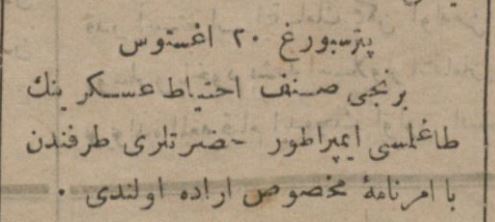 پترسبورغ ٢٠ اغستوس
برنجی صنف احتیاط عسکرینك
طاغلمسی ایمپراطور حضرتلری طرفندن
با امرنامهٔ مخصوص اراده اولندی ٠